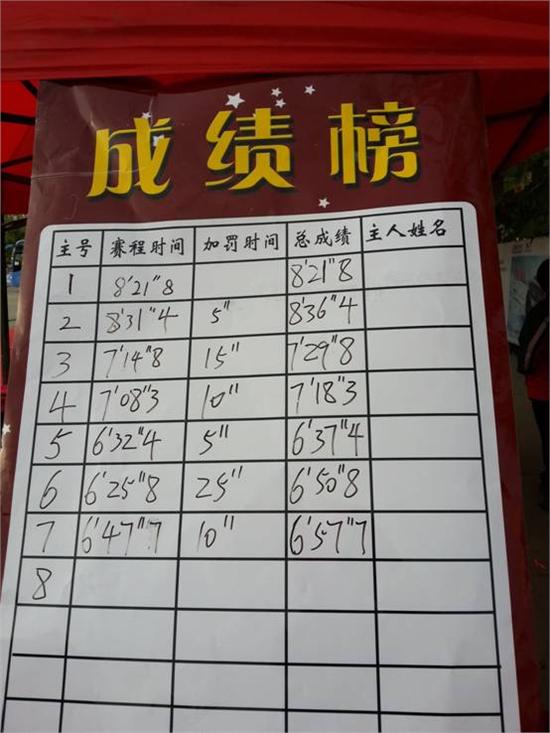 成绩榜
主号 赛程时间 加罚时间 总成绩 主人姓名
1 8'21"8 8'21"8
2 8'31"4 5" 8'36"4
3 7'14"8 15" 7'29"8
4 7'08"3 10" 7'18"3
5 6'32"4 5" 6'37"4
6 6'25"8 25" 6'50"8
7 6'47"7 10" 6'57"7
8